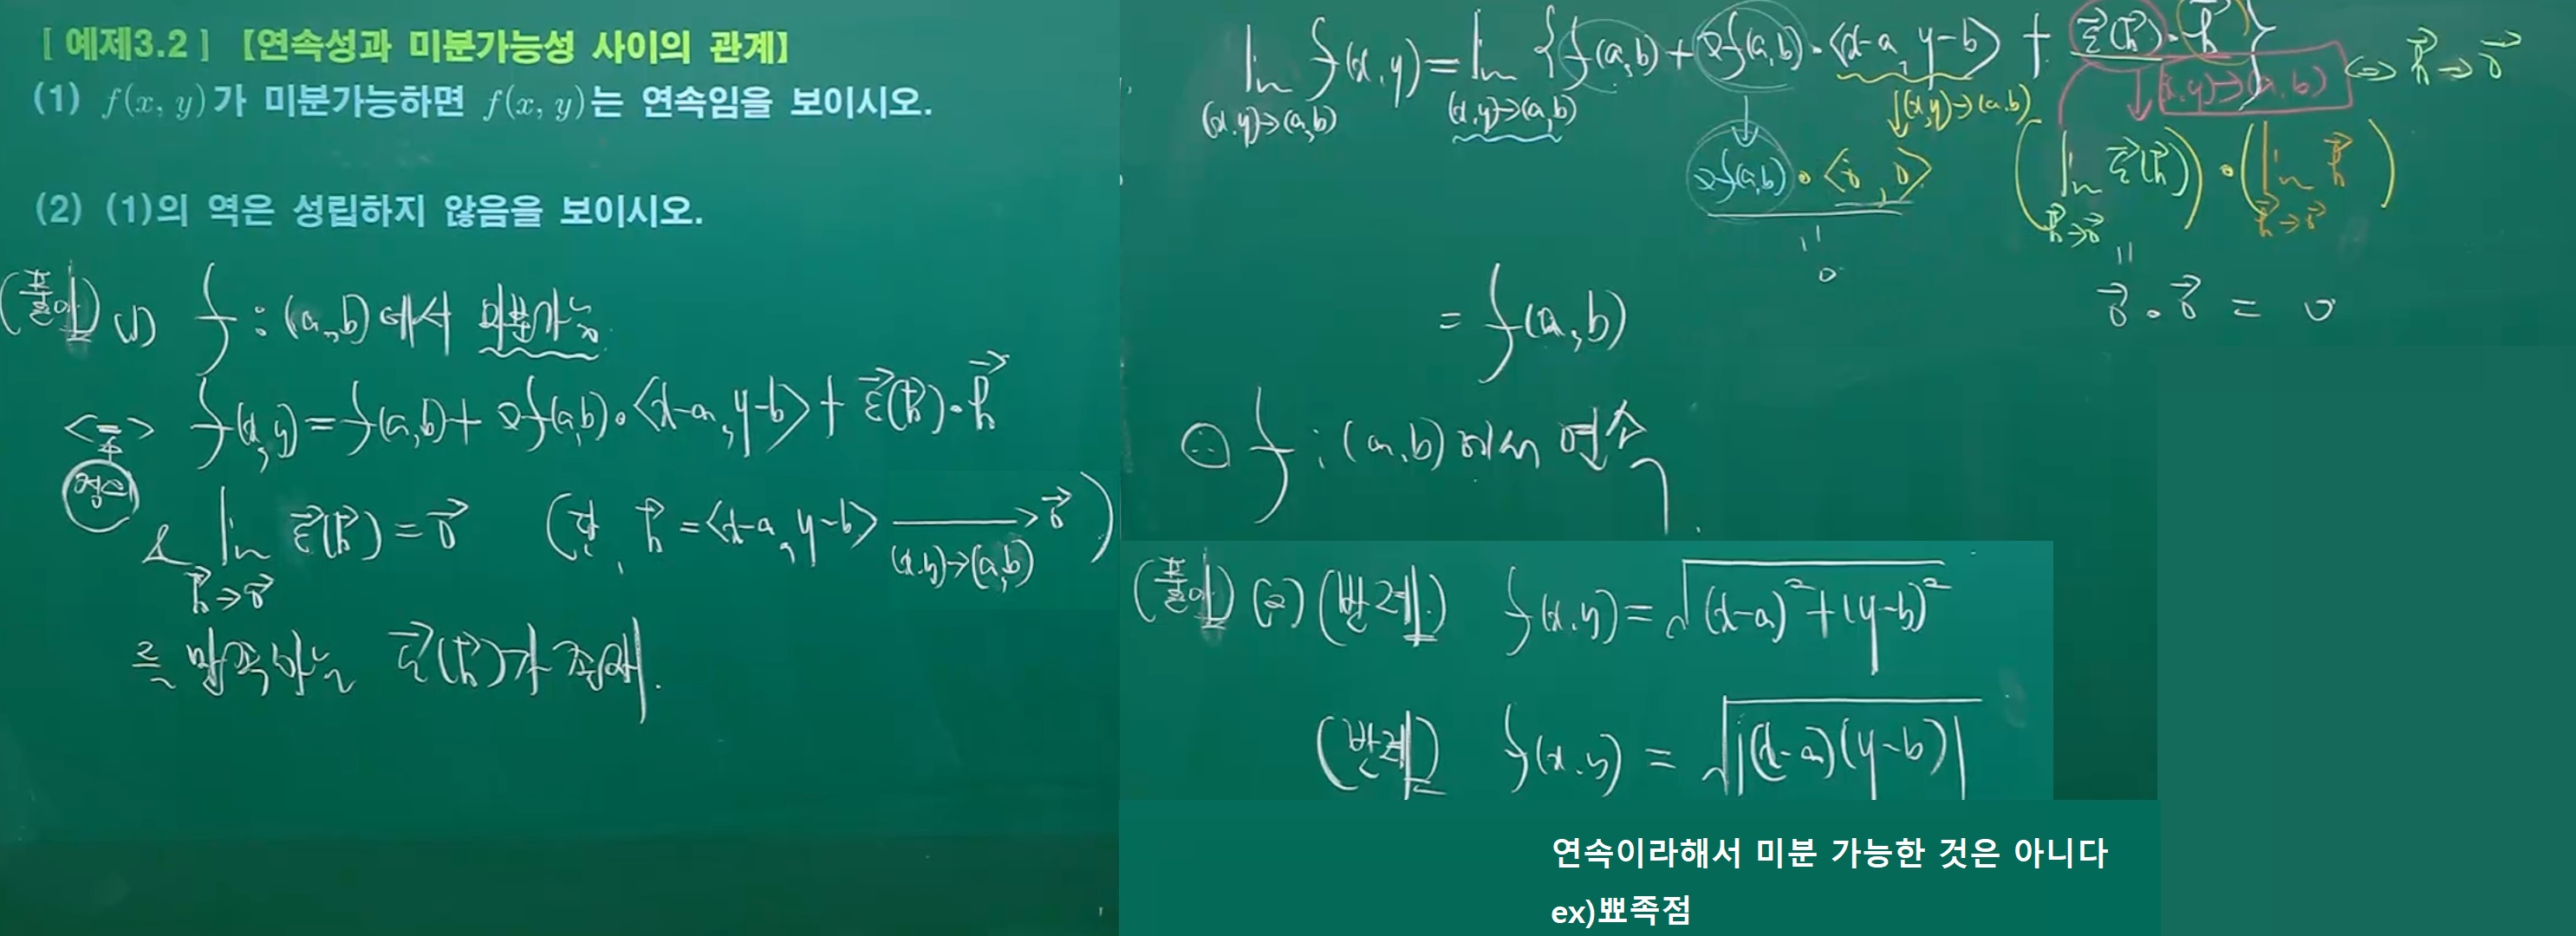 [ 예제3.2 ] 【연속성과 미분가능성 사이의 관계】
(1) f(x, y)가 미분가능하면 f(x, y)는 연속임을 보이시오.
(2) (1)의 역은 성립하지 않음을 보이시오.
(풀이) (1) f : (a, b)에서 미분가능
<=> f(x, y) = f(a, b) + ∇f(a, b)·<x-a, y-b> + ε⃗(h⃗)·h⃗
정의
& lim ε⃗(h⃗) = 0⃗ (단, h⃗ = <x-a, y-b> → 0⃗)
h⃗→0⃗ (x,y)→(a,b)
를 만족하는 ε⃗(h⃗)가 존재.
lim f(x, y) = lim { f(a, b) + ∇f(a, b)·<x-a, y-b> + ε⃗(h⃗)·h⃗ }
(x,y)→(a,b) (x,y)→(a,b) ↓ ↓(x,y)→(a,b) ↓(x,y)→(a,b) <=> h⃗→0⃗
∇f(a, b)·<0, 0> (lim ε⃗(h⃗))·(lim h⃗)
h⃗→0⃗ h⃗→0⃗
" "
0 0⃗·0⃗ = 0
= f(a, b)
∴ f : (a, b)에서 연속.
(풀이) (2) (반례) f(x, y) = √(x-a)²+(y-b)²
(반례) f(x, y) = √|(x-a)(y-b)|
연속이라해서 미분 가능한 것은 아니다
ex)뾰족점